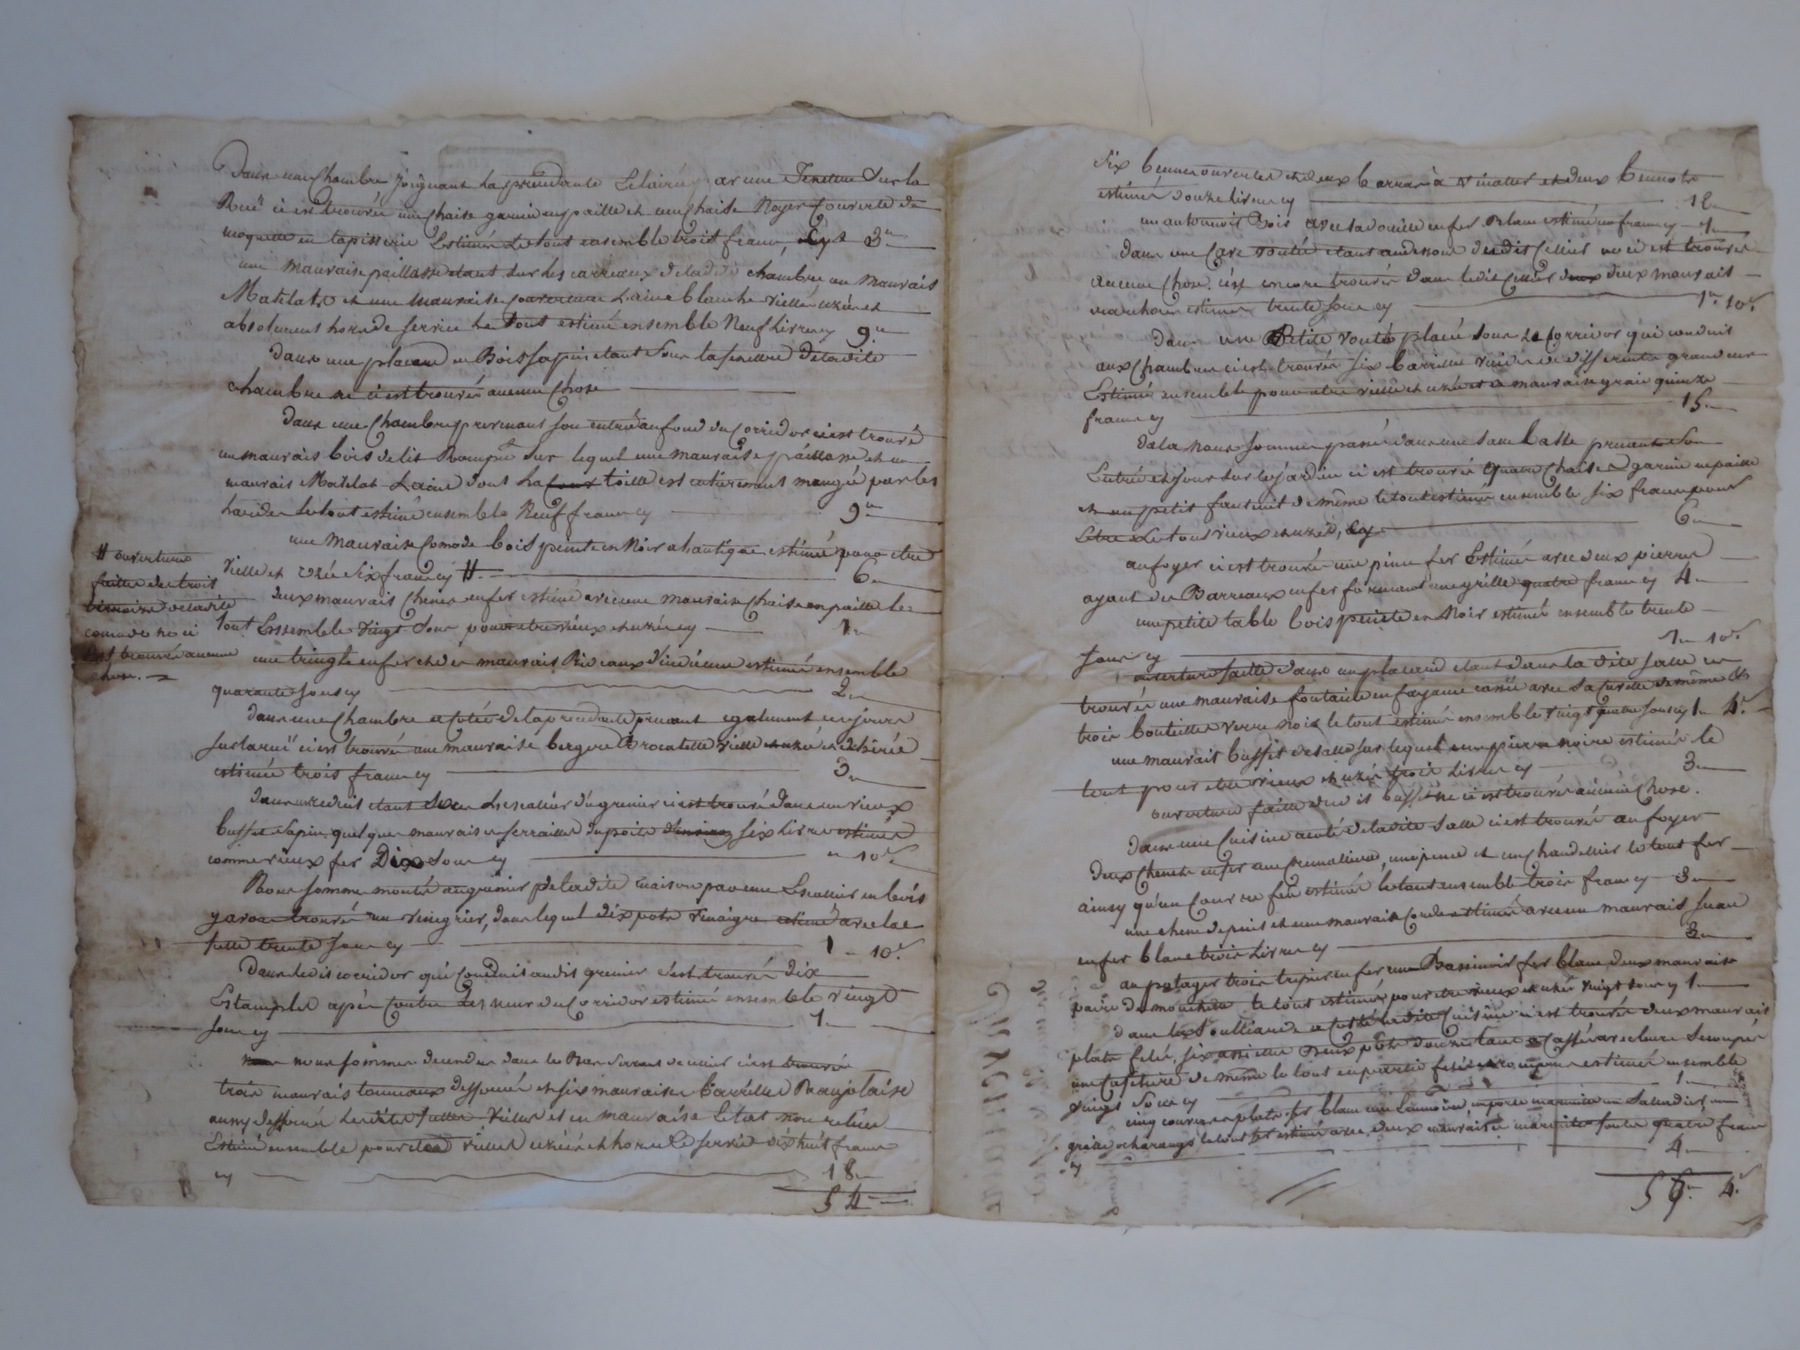 Dans une Chambre Joignant la precedante Eclairée par une Fenetre Sur la
Ruë ci est trouvée une Chaise garnie en paille et une Chaise Noyer Couverte de
moquette en tapisserie Estimée le tout ensemble trois francs, Cy 3
une mauvaise paillasse étant sur les carreaux de ladite chambre un Mauvais
Matelat et une mauvaise couverture Laine blanche vielle uzée et
absolument hors de service le tout estimé ensemble Neuf Livres cy 9
Dans une placard en Bois Sapin étant Sous la fenettre de ladite
chambre ne ci est trouvé aucune Chose
Dans une Chambre prennant son entrée au fond du Corridor ci est trouvé
un mauvais bois de lit Rompu Sur lequel une mauvaise paillasse et un
mauvais Matelat Laine dont la toille est entierement mangé par les
le tout estimé ensemble Neuf francs cy 9
une mauvaise Comode bois peinte en Noir a l'antique estimée pour etre
vielle et uzée Six francs cy # 6
# ouverture
faitte des trois
tirroirs de ladite
comode ne ci
est trouvé aucune
chose.
deux mauvais Chenes en fer estimé avec une mauvaise Chaise en paille le
tout Ensemble Vingt Sous pour etre vieux et uzés cy 1
une tringle en fer et des mauvais Rideaux d'indienne estimé ensemble
quarante sous cy 2
Dans une Chambre a coté de la precedante prenant egalement ses jours
sur la ruë ci est trouvé une mauvaise bergere Brocatelle vielle et uzée et dechirée
estimée trois francs cy 3
Dans un reduit étant Sous l'escallier du grenier ci est trouvé dans un vieux
buffet Sapin quelques mauvaises ferrailles du poids six livres estimées
comme vieux fer Dix Sous cy 10
Nous sommes montés au grenier de ladite maison par une Escallier en bois
y avons trouvé un vinegrier, dans lequel dix pots vinaigre estimé avec la
trente sous cy 1 - 10
Dans ledit corridor qui Conduit audit grenier s'est trouvé dix
Estamples apées Contre les murs du Corridor estimé ensemble vingt
sous cy 1
nous sommes decendus dans le ci est trouvé
trois mauvais tonneaux deffoncés et six mauvaises barrilles Beaujolaise
aussy deffoncés vielles et en mauvaise Etat non reliées
Estimé ensemble pour etre vielles uzées et hors de service dix huit francs
cy 18
54
Six bennes ouvertes et deux barraux à et deux bennots
estimés douze Livres cy 12
un antonnoir Bois avec sa douille en fer Blanc estimé un franc cy 1
dans une Cave voutée étant au dessous dudit Cellier ne ci est trouvé
aucune Chose, s'est encore trouvé dans ledit Cellier deux mauvais
estimés trente sous cy 1 10
Dans une Petite voute placée sous le Corridor qui conduit
aux Chambres ci est trouvé six barrilles vuides de differente grandeur
Estimé ensemble pour etre vielle et uzée et a mauvaise quinze
francs cy 15
de la nous sommes passé dans une Salle basse prenant son
Entrée et jour sur le jardin ci est trouvé quatre Chaises garnie en paille
et un petit fauteuil de même le tout estimé ensemble six francs pour
Etre le tout vieux et uzé, cy 6
au foyer ci est trouvée une pinne fer Estimée avec deux pierres
ayant des Barreaux en fer formant une grille quatre francs cy 4
une petite table bois peinte en Noir estimé ensemble trente
sous cy 1 10
ouverture faitte d'un placard étant dans la dite salle ci
trouvé une mauvaise fontaine en fayance cassée avec sa cuvette de même et
trois bouteilles verre noir le tout estimé ensemble vingt quatre sous cy 1 4
une mauvais buffet de salle sur lequel une pierre noire estimé le
tout pour etre vieux et uzés trois Livres cy 3
ouverture faitte dudit buffet ne ci est trouvé aucune Chose.
Dans une Cuisine a coté de ladite Salle ci est trouvé au foyer
deux Chenets en fer une Cremalliere, une pince et un Chandellier le tout fer
ainsy qu'un couvre feu estimé le tout ensemble trois francs cy 3
une chene de puits et une mauvaise corde estimée avec un mauvais Seau
en fer blanc trois Livres cy 3
au potager trois trepier en fer une Bassinoir fer blanc deux mauvaise
paire de mouchette le tout estimé pour etre vieux et uzés vingt sous cy 1
dans la Soulliarde a coté de ladite Cuisine ci est trouvé deux mauvais
plats felé, six assiette deux pots cassé avec leurs Secoupes
une cafetiere de même le tout en partie felé estimée ensemble
vingt sous cy 1
cinq couvercle plats fer blanc une un porte une Salladier, un
le tout fer estimé avec deux mauvaise marmitte fonte quatre francs
cy 4
56 4